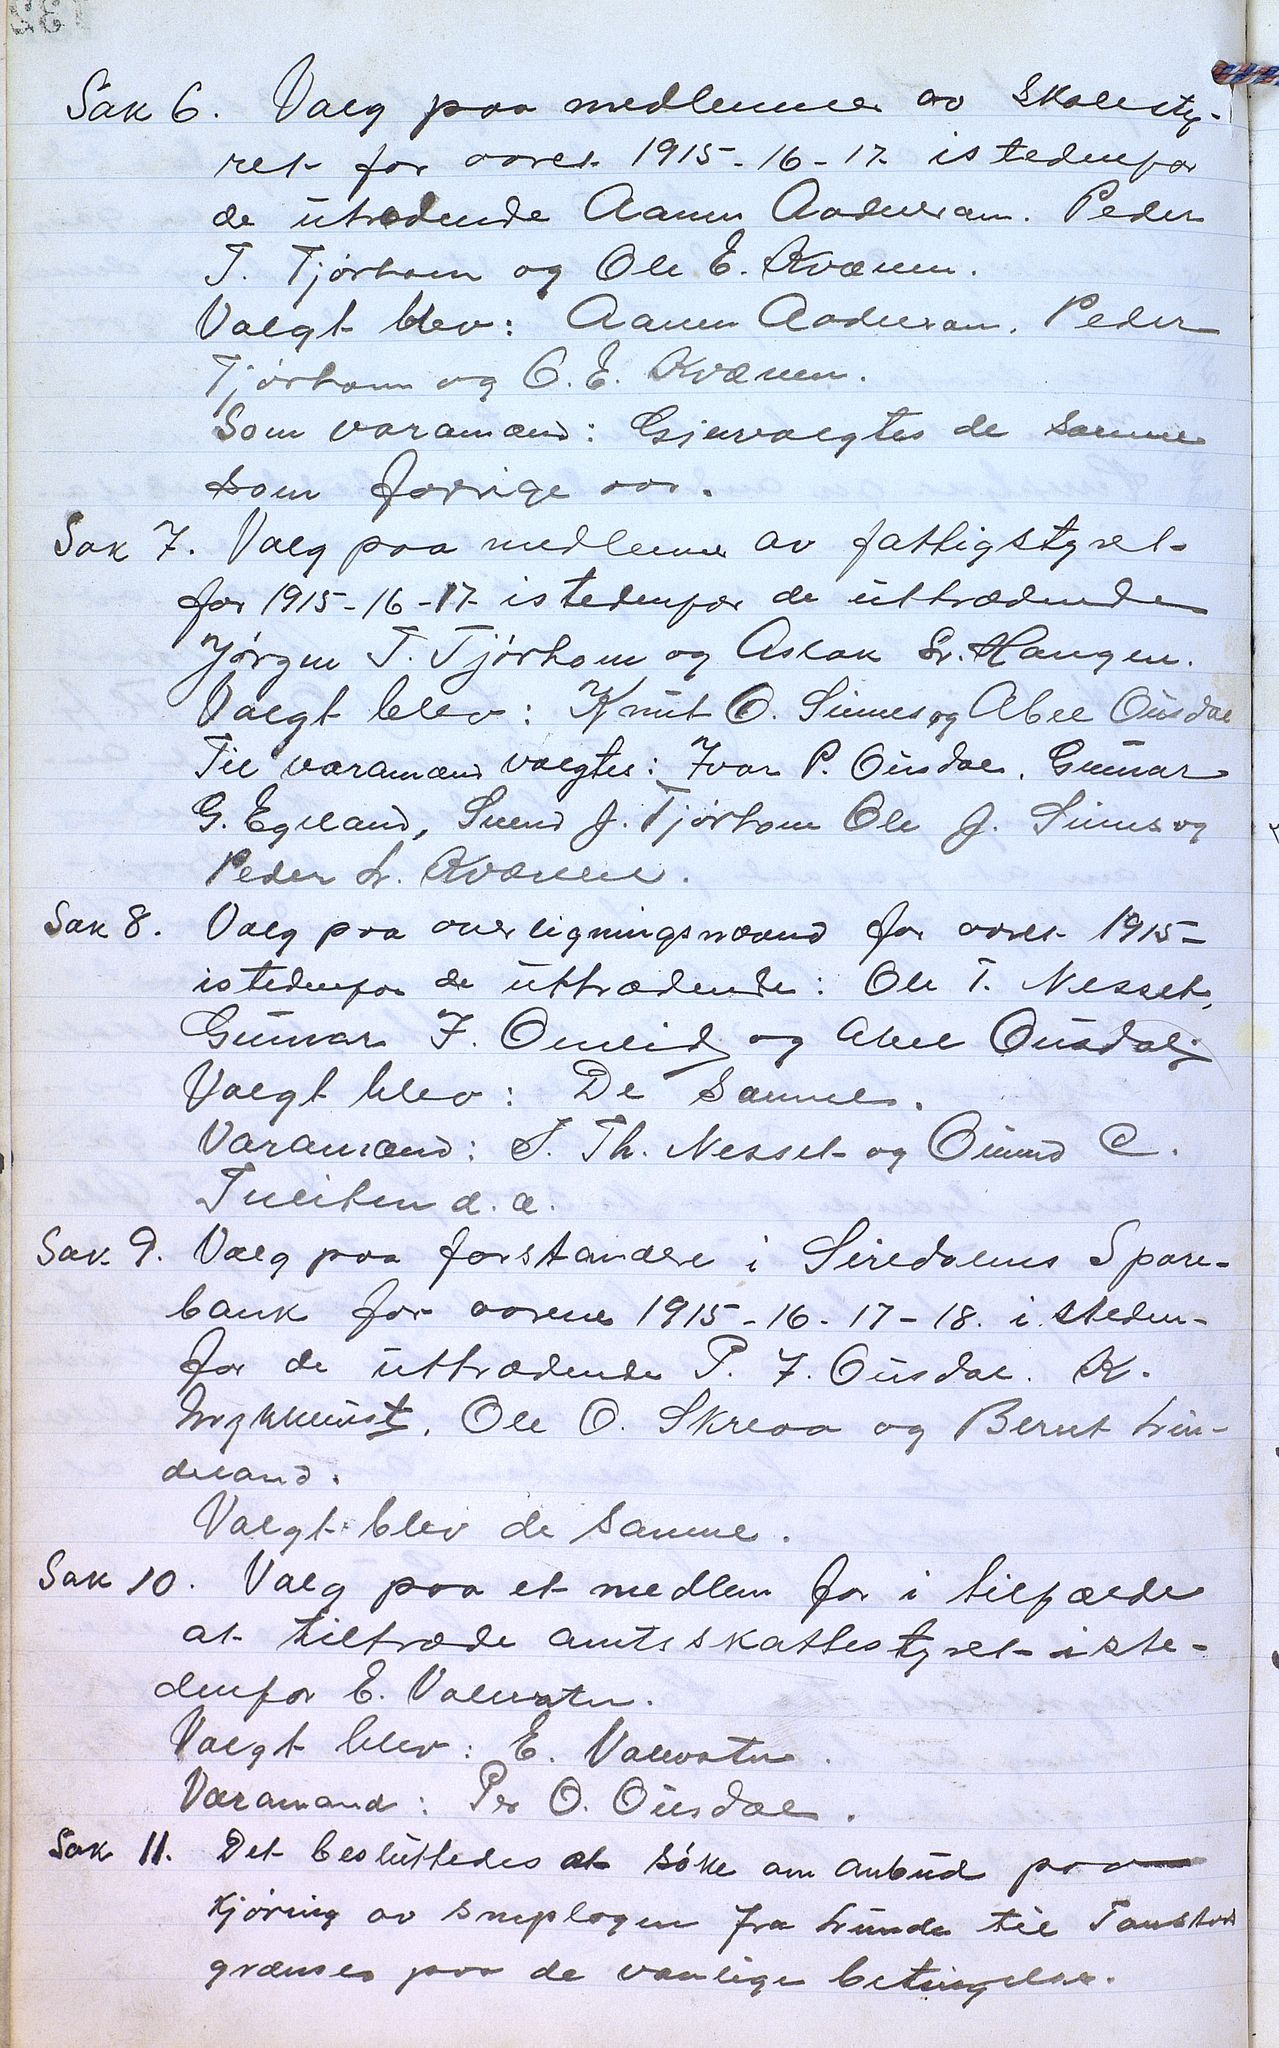 Sak 6. Valg paa medlemmer av Skolesty-
ret for aaret 1915-16-17 istedenfor
de utrædende Aanen Aadneram. Peder
T. Tjørhom og Ole E. Kvænen.
Valgt blev: Aanen Aadneram. Peder
Tjørhom og O. E. Kvænen.
Som varamænd: Gjenvalgtes de samme
som forrige aar.
Sak 7. Valg paa medlemmer av fattigstyret
for 1915-16-17 istedenfor de uttrædende
Jørgen T. Tjørhom og Aslak Sr. Haugen.
Valgt blev: Knut O. Sinnes og Abel Ousdal
Til varamænd valgtes: Ivar P. Ousdal. Gunnar
G. Egeland, Svend J. Tjørhom Ole J. Sinnes og
Peder L. Kvænen.
Sak 8. Valg paa overligningsnævnd for aaret 1915-
istedenfor de uttrædende: Ole T. Nesset,
Gunvar I. Omlid og Abel Ousdal.
Valgt blev: De samme.
Varamænd: T. Th. Nesset og Omund C.
Tveiten d. æ.
Sak 9. Valg paa forstandere i Siredalens Spare-
bank for aarene 1915-16-17-18. i steden-
for de uttrædende P. I. Ousdal. K.
Ole O. Skreaa og Bernt Lin-
deland.
Valgt blev de samme.
Sak 10. Valg paa et medlem for i tilfælde
at tiltræde amtsskattestyret iste-
denfor E. Valevatn.
Valgt blev: E. Valevatn.
Varamand: Per O. Ousdal.
Sak 11. Det besluttedes at søke om anbud paa
kjøring av sneplogen fra Lunde til Tonstad
grænsen paa de vanlige betingelser.